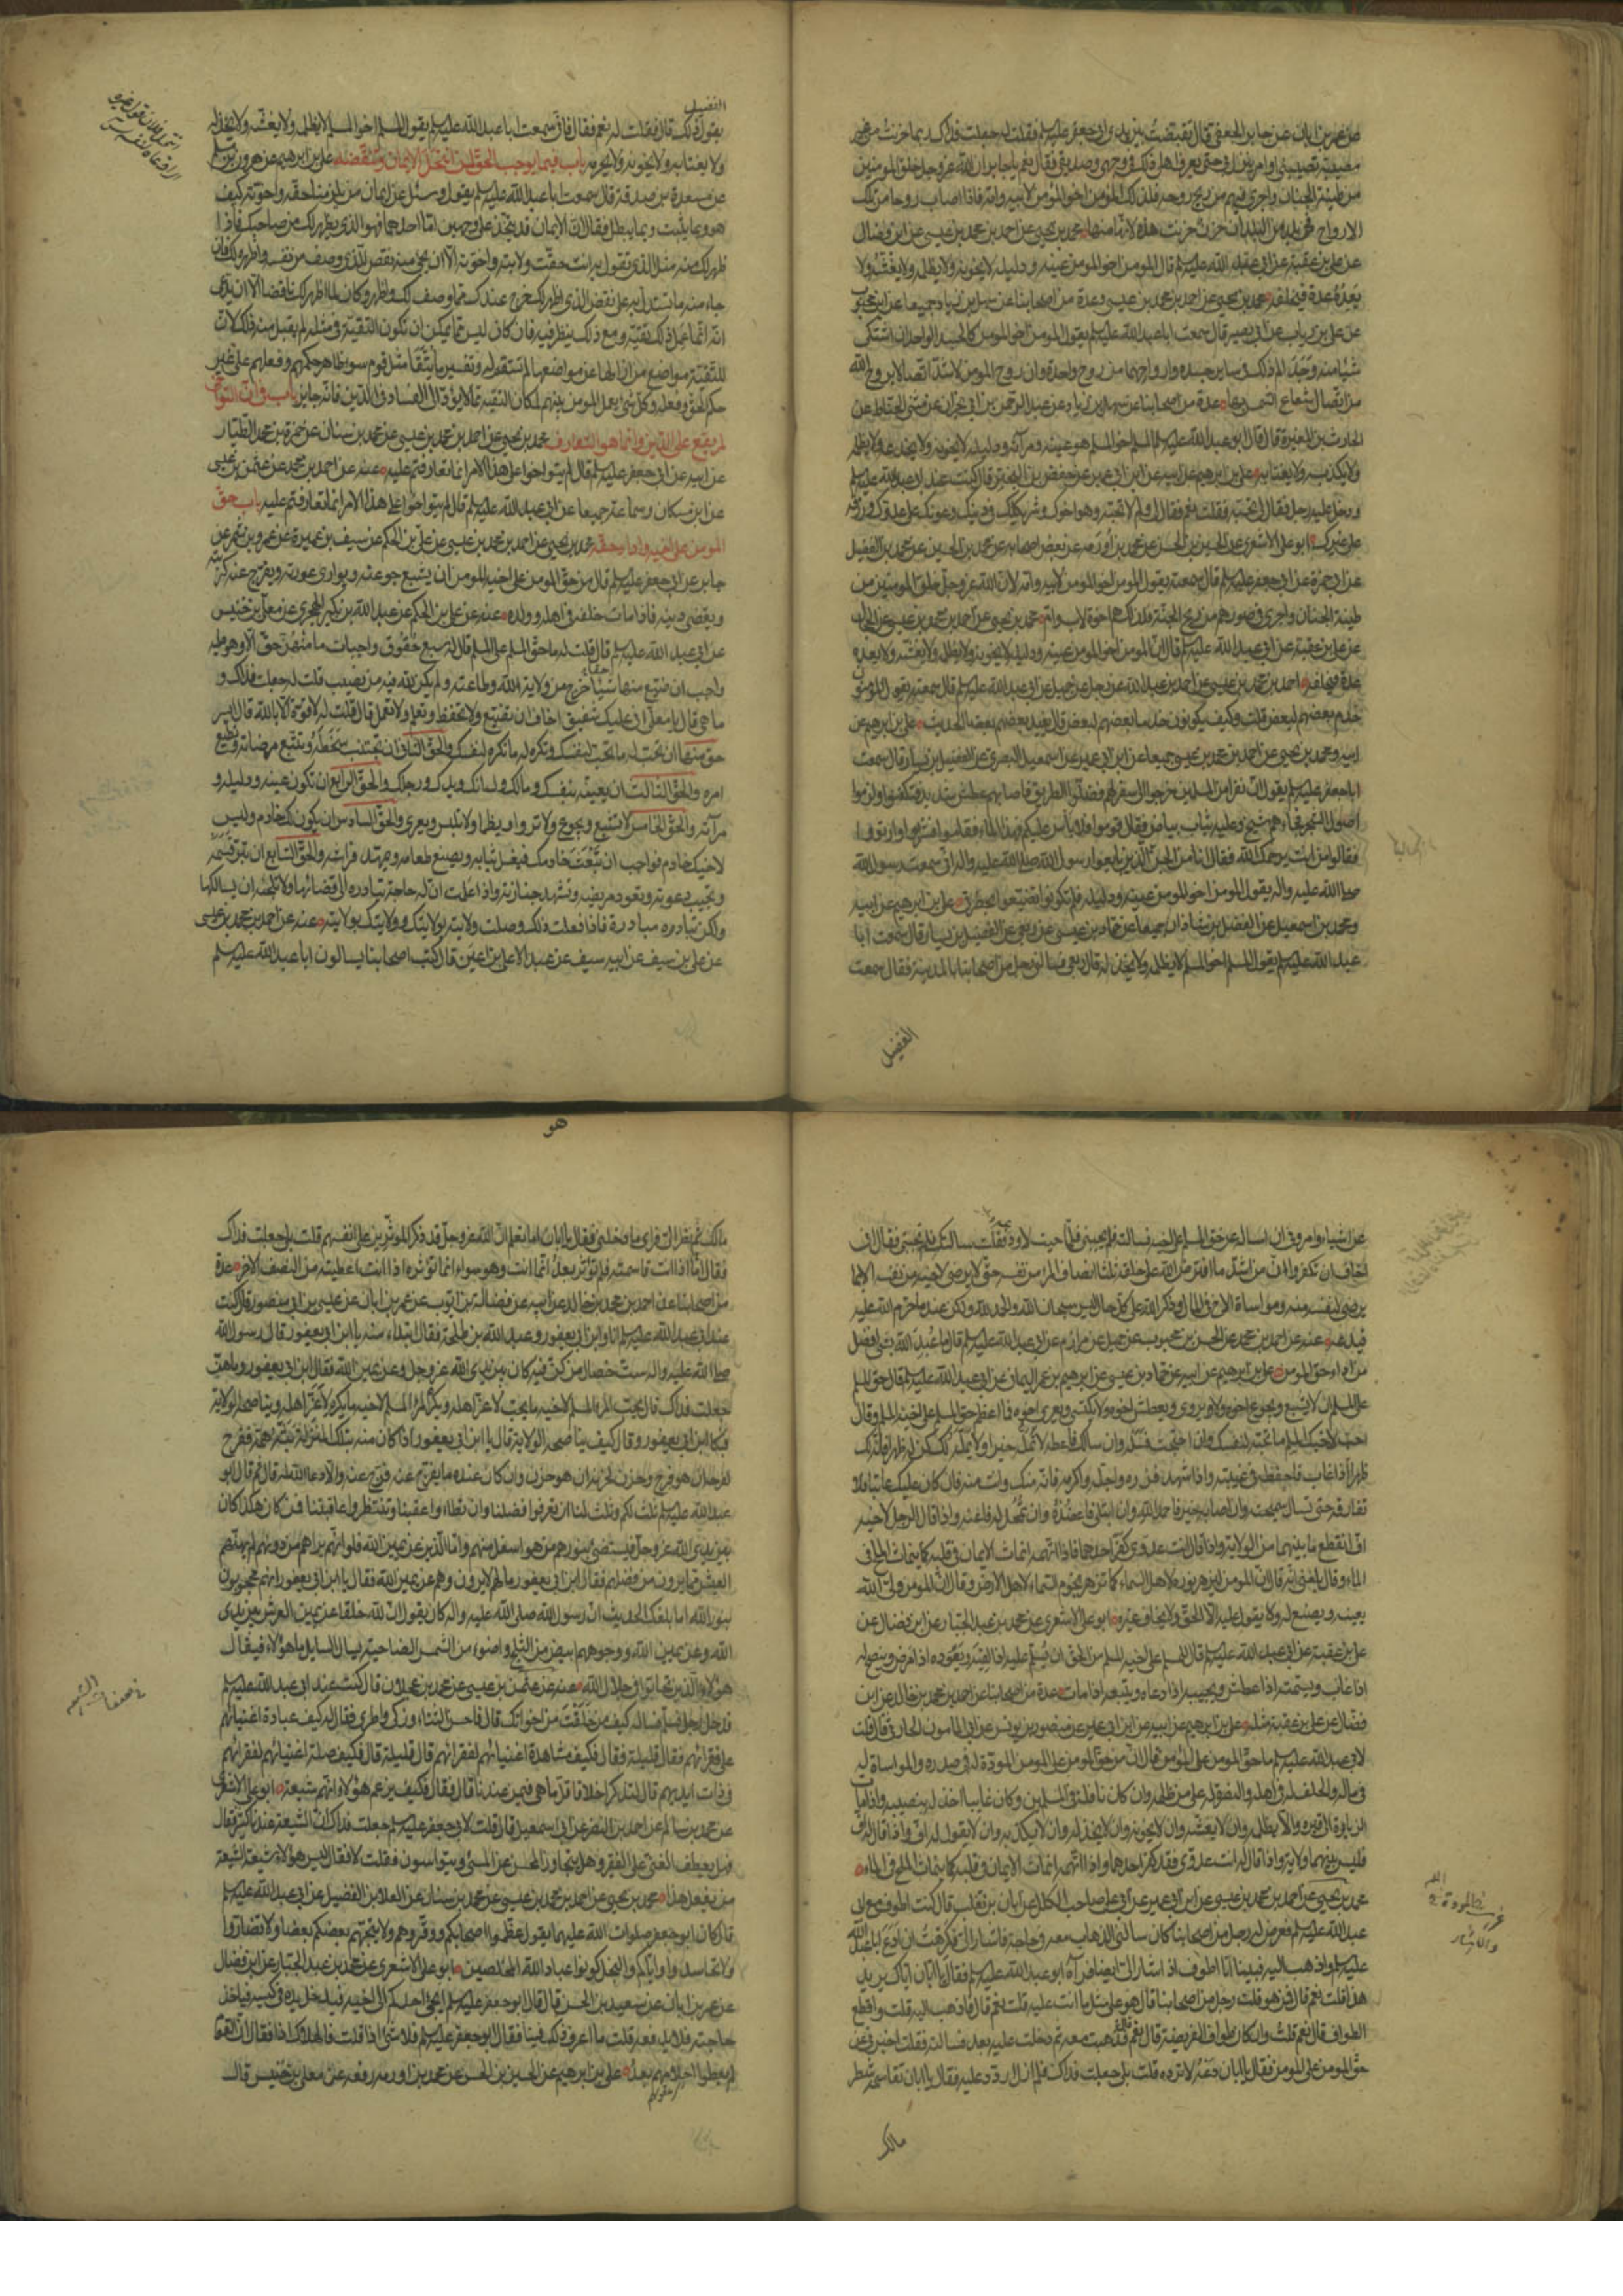 عن عمر بن ابان عن جابر الجعفي قال تقبضت بين يدي ابي جعفر عليه السلم فقلت له جعلت فداك ربما حزنت من غير
مصيبة تصيبني او امر ينزل بي حتى يعرف اهلي ذلك في وجهي وصديقي فقال نعم يا جابر ان الله عز وجل خلق المومنين
من طينة الجنان واجرى فيهم من ريح روحه فلذلك المومن اخو المومن لابيه وامه فاذا اصاب روحا من تلك
الارواح في بلد من البلدان حزن حزنت هذه لانها منها محمد بن يحيى عن احمد بن محمد بن عيسى عن ابن فضال
عن علي بن عقبة عن ابي عبد الله عليه السلم قال المومن اخو المومن عينه ودليله لا يخونه ولا يظلمه ولا يغشه ولا
يعده عدة فيخلفه محمد بن يحيى عن احمد بن محمد بن عيسى وعدة من اصحابنا عن سهل بن زياد جميعا عن ابن محبوب
عن علي بن رياب عن ابي بصير قال سمعت ابا عبد الله عليه السلم يقول المومن اخو المومن كالجسد الواحد ان اشتكى
شيئا منه وجد الم ذلك في ساير جسده وارواحهما من روح واحدة وان روح المومن لاشد اتصالا بروح الله
من اتصال شعاع الشمس بها عدة من اصحابنا عن سهل بن زياد عن عبد الرحمن بن ابي نجران عن مثنى الحناط عن
الحارث بن المغيرة قال قال ابو عبد الله عليه السلم المسلم اخو المسلم هو عينه ومرآته ودليله لا يخونه ولا يخدعه ولا يظلمه
ولا يكذبه ولا يغتابه علي بن ابرهيم عن ابيه عن ابن ابي عمير عن حفص بن البختري قال كنت عند ابي عبد الله عليه السلم
ودخل عليه رجل فقال لي تحبه فقلت نعم فقال لي ولم لا تحبه وهو اخوك وشريكك في دينك وعونك على عدوك ورزقه
على غيرك ابو علي الاشعري عن الحسين بن الحسن عن محمد بن اورمه عن بعض اصحابه عن محمد بن الحسين عن محمد بن الفضيل
عن ابي حمزة عن ابي جعفر عليه السلم قال سمعته يقول المومن اخو المومن لابيه وامه لان الله عز وجل خلق المومنين من
طينة الجنان واجرى في صورهم من ريح الجنة فلذلك هم اخوة لاب وام محمد بن يحيى عن احمد بن محمد بن عيسى عن الحجال
عن علي بن عقبة عن ابي عبد الله عليه السلم قال ان المومن اخو المومن عينه ودليله لا يخونه ولا يظلمه ولا يغشه ولا يعده
عدة فيخلفه احمد بن محمد بن عيسى عن احمد بن عبد الله عن رجل عن جميل عن ابي عبد الله عليه السلم قال سمعته يقول المومنون
خدم بعضهم لبعض قلت وكيف يكونون خدما بعضهم لبعض قال يفيد بعضهم بعضا الحديث علي بن ابرهيم عن
ابيه ومحمد بن يحيى عن احمد بن محمد بن عيسى جميعا عن ابن ابي عمير عن اسمعيل البصري عن الفضيل بن يسار قال سمعت
ابا جعفر عليه السلم يقول ان نفرا من المسلمين خرجوا الى سفر لهم فضلوا الطريق فاصابهم عطش شديد فتكفنوا ولزموا
اصول الشجر فجاءهم شيخ وعليه ثياب بياض فقال قوموا فلا باس عليكم فهذا الماء فقاموا فشربوا وارتووا
فقالوا من انت يرحمك الله فقال انا من الجن الذين بايعوا رسول الله صلى الله عليه واله اني سمعت رسول الله
صلى الله عليه واله يقول المومن اخو المومن عينه ودليله فلم تكونوا تضيعوا بحضرتي علي بن ابرهيم عن ابيه
ومحمد بن اسمعيل عن الفضل بن شاذان جميعا عن حماد بن عيسى عن ربعي عن الفضيل بن يسار قال سمعت ابا
عبد الله عليه السلم يقول المسلم اخو المسلم لا يظلمه ولا يخذله قال ربعي فسالني رجل من اصحابنا بالمدينة فقال سمعت
الفضيل
الفضيل
يقول ذلك قال فقلت له نعم فقال فاني سمعت ابا عبد الله عليه السلم يقول المسلم اخو المسلم لا يظلمه ولا يغشه ولا يخذله
ولا يغتابه ولا يخونه ولا يحرمه باب فيما يوجب الحق لمن انتحل الايمان وينقضه علي بن ابرهيم عن هرون بن مسلم
عن مسعدة بن صدقة قال سمعت ابا عبد الله عليه السلم يقول وسئل عن ايمان من يلزمنا حقه واخوته كيف
هو وبما يثبت وبما يبطل فقال ان الايمان قد يتخذ على وجهين اما احدهما فهو الذي يظهر لك من صاحبك فاذا
ظهر لك منه مثل الذي تقول به انت حقت ولايته واخوته الا ان يجئ منه نقض للذي وصف من نفسه واظهره لك فان
جاء منه ما تستدل به على نقض الذي اظهر لك خرج عندك مما وصف لك واظهر وكان لما اظهر لك ناقضا الا ان يدعي
انه انما عمل ذلك تقية ومع ذلك ينظر فيه فان كان ليس مما يمكن ان تكون التقية في مثله لم يقبل منه ذلك لان
للتقية مواضع من ازالها عن مواضعها لم تستقم له وتفسير ما يتقى مثل قوم سوء ظاهر حكمهم وفعلهم على غير
حكم الحق وفعله وكل شئ يعمل المومن بينهم لمكان التقية مما لا يؤدي الى الفساد في الدين فانه جايز باب في ان التواخي
لم يقع على الدين وانما هو التعارف محمد بن يحيى عن احمد بن محمد بن عيسى عن محمد بن سنان عن حمزة بن محمد الطيار
عن ابيه عن ابي جعفر عليه السلم قال لم تتواخوا على هذا الامر انما تعارفتم عليه عنه عن احمد بن محمد عن عثمن بن عيسى
عن ابن مسكان وسماعة جميعا عن ابي عبد الله عليه السلم قال لم تتواخوا على هذا الامر انما تعارفتم عليه باب حق
المومن على اخيه واداء حقه محمد بن يحيى عن احمد بن محمد بن عيسى عن علي بن الحكم عن سيف بن عميرة عن عمرو بن شمر عن
جابر عن ابي جعفر عليه السلم قال من حق المومن على اخيه المومن ان يشبع جوعته ويواري عورته ويفرج عنه كربته
ويقضي دينه فاذا مات خلفه في اهله وولده عنه عن علي بن الحكم عن عبد الله بن بكير الهجري عن معلى بن خنيس
عن ابي عبد الله عليه السلم قال قلت له ما حق المسلم على المسلم قال له سبع حقوق واجبات ما منهن حق الا وهو عليه
واجب ان ضيع منها شيئا خرج من ولاية الله وطاعته ولم يكن لله فيه من نصيب قلت له جعلت فداك و
ما هي قال يا معلى اني عليك شفيق اخاف ان تضيع ولا تحفظ وتعلم ولا تعمل قال قلت له لا قوة الا بالله قال ايسر
حق منها ان تحب له ما تحب لنفسك وتكره له ما تكره لنفسك والحق الثاني ان تجتنب سخطه وتتبع مرضاته وتطيع
امره والحق الثالث ان تعينه بنفسك ومالك ولسانك ويدك ورجلك والحق الرابع ان تكون عينه ودليله و
مرآته والحق الخامس لا تشبع ويجوع ولا تروى ويظما ولا تلبس ويعرى والحق السادس ان يكون لك خادم وليس
لاخيك خادم فواجب ان تبعث خادمك فيغسل ثيابه ويصنع طعامه ويمهد فراشه والحق السابع ان تبر قسمه
وتجيب دعوته وتعود مريضه وتشهد جنازته واذا علمت ان له حاجة تبادره الى قضائها ولا تلجئه ان يسالكها
ولكن تبادره مبادرة فاذا فعلت ذلك وصلت ولايته بولايتك وولايتك بولايته عنه عن احمد بن محمد بن عيسى
عن علي بن سيف عن ابيه سيف عن عبد الاعلى بن اعين قال كتب اصحابنا يسالون ابا عبد الله عليه السلم
عن اشياء وامروني ان اساله عن حق المسلم على اخيه فسالته فلم يجبني فلما جئت لاودعه فقلت سالتك فلم تجبني فقال اني
اخاف ان تكفروا ان من اشد ما افترض الله على خلقه ثلثا انصاف المرء من نفسه حتى لا يرضى لاخيه من نفسه الا بما
يرضى لنفسه منه ومواساة الاخ في المال وذكر الله على كل حال ليس سبحان الله والحمد لله ولكن عند ما حرم الله عليه
فيدعه عنه عن احمد بن محمد عن الحسن بن محبوب عن جميل عن مرازم عن ابي عبد الله عليه السلم قال ما عبد الله بشئ افضل
من اداء حق المومن علي بن ابرهيم عن ابيه عن حماد بن عيسى عن ابرهيم بن عمر اليماني عن ابي عبد الله عليه السلم قال حق المسلم
على المسلم ان لا يشبع ويجوع اخوه ولا يروى ويعطش اخوه ولا يكتسي ويعرى اخوه فما اعظم حق المسلم على اخيه المسلم وقال
احب لاخيك المسلم ما تحبه لنفسك وان احتجت فسله وان سالك فاعطه لا تمله خيرا ولا يمله لك كن له ظهرا فانه لك
ظهر اذا غاب فاحفظه في غيبته واذا شهد فزره واجله واكرمه فانه منك وانت منه فان كان عليك عاتبا فلا
تفارقه حتى تسال سميحته وان اصابه خير فاحمد الله وان ابتلي فاعضده وان تمحل له فاعنه واذا قال الرجل لاخيه
اف انقطع ما بينهما من الولاية واذا قال انت عدوي كفر احدهما فاذا اتهمه انماث الايمان في قلبه كما ينماث الملح في
الماء وقال بلغني انه قال ان المومن ليزهر نوره لاهل السماء كما تزهر نجوم السماء لاهل الارض وقال ان المومن ولي الله
يعينه ويصنع له ولا يقول عليه الا الحق ولا يخاف غيره ابو علي الاشعري عن محمد بن عبد الجبار عن ابن فضال عن
علي بن عقبة عن ابي عبد الله عليه السلم قال للمسلم على اخيه المسلم من الحق ان يسلم عليه اذا لقيه ويعوده اذا مرض وينصح له
اذا غاب ويسمته اذا عطس ويجيبه اذا دعاه ويتبعه اذا مات عدة من اصحابنا عن احمد بن محمد بن خالد عن ابن
فضال عن علي بن عقبة مثله علي بن ابرهيم عن ابيه عن ابن ابي عمير عن منصور بن يونس عن ابي المامون الحارثي قال قلت
لابي عبد الله عليه السلم ما حق المومن على المومن قال ان من حق المومن على المومن المودة له في صدره والمواساة له
في ماله والخلف له في اهله والنصرة له على من ظلمه وان كان نافلة في المسلمين وكان غايبا اخذ له بنصيبه واذا مات
الزيارة الى قبره وان لا يظلمه وان لا يغشه وان لا يخونه وان لا يخذله وان لا يكذبه وان لا يقول له اف واذا قال له اف
فليس بينهما ولاية واذا قال له انت عدوي فقد كفر احدهما واذا اتهمه انماث الايمان في قلبه كما ينماث الملح في الماء
محمد بن يحيى عن احمد بن محمد بن عيسى عن ابن ابي عمير عن ابي علي صاحب الكلل عن ابان بن تغلب قال كنت اطوف مع ابي
عبد الله عليه السلم فعرض لي رجل من اصحابنا كان سالني الذهاب معه في حاجة فاشار الي فكرهت ان ادع ابا عبد الله
عليه السلم واذهب اليه فبينا انا اطوف اذ اشار الي ايضا فرآه ابو عبد الله عليه السلم فقال يا ابان اياك يريد
هذا قلت نعم قال فمن هو قلت رجل من اصحابنا قال هو على مثل ما انت عليه قلت نعم قال فاذهب اليه قلت واقطع
الطواف قال نعم قلت وان كان طواف الفريضة قال نعم فذهبت معه ثم دخلت عليه بعد فسالته فقلت اخبرني عن
حق المومن على المومن فقال يا ابان دعه لا ترده قلت بلى جعلت فداك فلم ازل اردد عليه فقال يا ابان تقاسمه شطر
مالك
هو
مالك ثم نظر الي فراى ما دخلني فقال يا ابان اما تعلم ان الله عز وجل قد ذكر الموثرين على انفسهم قلت بلى جعلت فداك
فقال اما اذا انت قاسمته فلم توثره بعد انما انت وهو سواء انما توثره اذا انت اعطيته من النصف الاخر عدة
من اصحابنا عن احمد بن محمد بن خالد عن ابيه عن فضالة بن ايوب عن عمر بن ابان عن عيسى بن ابي منصور قال كنت
عند ابي عبد الله عليه السلم انا وابن ابي يعفور وعبد الله بن طلحة فقال ابتداء منه يا ابن ابي يعفور قال رسول الله
صلى الله عليه واله ست خصال من كن فيه كان بين يدي الله عز وجل وعن يمين الله فقال ابن ابي يعفور وما هن
جعلت فداك قال يحب المرء المسلم لاخيه ما يحب لاعز اهله ويكره المرء المسلم لاخيه ما يكره لاعز اهله ويناصحه الولاية
فبكا ابن ابي يعفور وقال كيف يناصحه الولاية قال يا ابن ابي يعفور اذا كان منه بتلك المنزلة بثه همه ففرح
لفرحه ان هو فرح وحزن لحزنه ان هو حزن وان كان عنده ما يفرج عنه فرج عنه والا دعا الله له قال ثم قال ابو
عبد الله عليه السلم ثلث لكم وثلث لنا ان تعرفوا فضلنا وان تطاوا عقبنا وتنتظروا عاقبتنا فمن كان هكذا كان
بين يدي الله عز وجل فيستضئ بنورهم من هو اسفل منهم واما الذين عن يمين الله فلو انهم يراهم من دونهم لم يهنئهم
العيش مما يرون من فضلهم فقال ابن ابي يعفور ما لهم لا يرون وهم عن يمين الله فقال يا ابن ابي يعفور انهم محجوبون
بنور الله اما بلغك الحديث ان رسول الله صلى الله عليه واله كان يقول ان لله خلقا عن يمين العرش بين يدي
الله وعن يمين الله ووجوههم ابيض من الثلج واضوء من الشمس الضاحية يسال السايل ما هؤلاء فيقال
هؤلاء الذين تحابوا في جلال الله عنه عن عثمن بن عيسى عن محمد بن عجلان قال كنت عند ابي عبد الله عليه السلم
فدخل رجل فسلم فساله كيف من خلفت من اخوانك قال فاحسن الثناء وزكى واطرى فقال له كيف عيادة اغنيائهم
على فقرائهم فقال قليلة فقال فكيف مشاهدة اغنيائهم لفقرائهم قال قليلة قال فكيف صلة اغنيائهم لفقرائهم
في ذات ايديهم قال انك لتذكر اخلاقا قل ما هي فيمن عندنا قال فقال فكيف يزعم هؤلاء انهم شيعة ابو علي الاشعري
عن محمد بن سالم عن احمد بن النضر عن ابي اسمعيل قال قلت لابي جعفر عليه السلم جعلت فداك ان الشيعة عندنا كثير فقال
فهل يعطف الغني على الفقير وهل يتجاوز المحسن عن المسئ ويتواسون فقلت لا فقال ليس هؤلاء شيعة الشيعة
من يفعل هذا محمد بن يحيى عن احمد بن محمد بن عيسى عن محمد بن سنان عن العلا بن الفضيل عن ابي عبد الله عليه السلم
قال كان ابو جعفر صلوات الله عليهما يقول عظموا اصحابكم ووقروهم ولا يتجهم بعضكم بعضا ولا تضاروا
ولا تحاسدوا واياكم والبخل كونوا عباد الله المخلصين ابو علي الاشعري عن محمد بن عبد الجبار عن ابن فضال
عن عمر بن ابان عن سعيد بن الحسن قال قال ابو جعفر عليه السلم ايجئ احدكم الى اخيه فيدخل يده في كيسه فياخذ
حاجته فلا يدفعه قلت ما اعرف ذلك فينا فقال ابو جعفر عليه السلم فلا شئ اذا قلت فالهلاك اذا فقال ان القوم
لم يعطوا احلامهم بعد علي بن ابرهيم عن الحسين بن الحسن عن محمد بن اورمه رفعه عن معلى بن خنيس قال